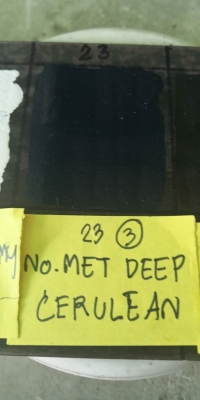 23
23 ③
My
NO. MET DEEP
CERULEAN